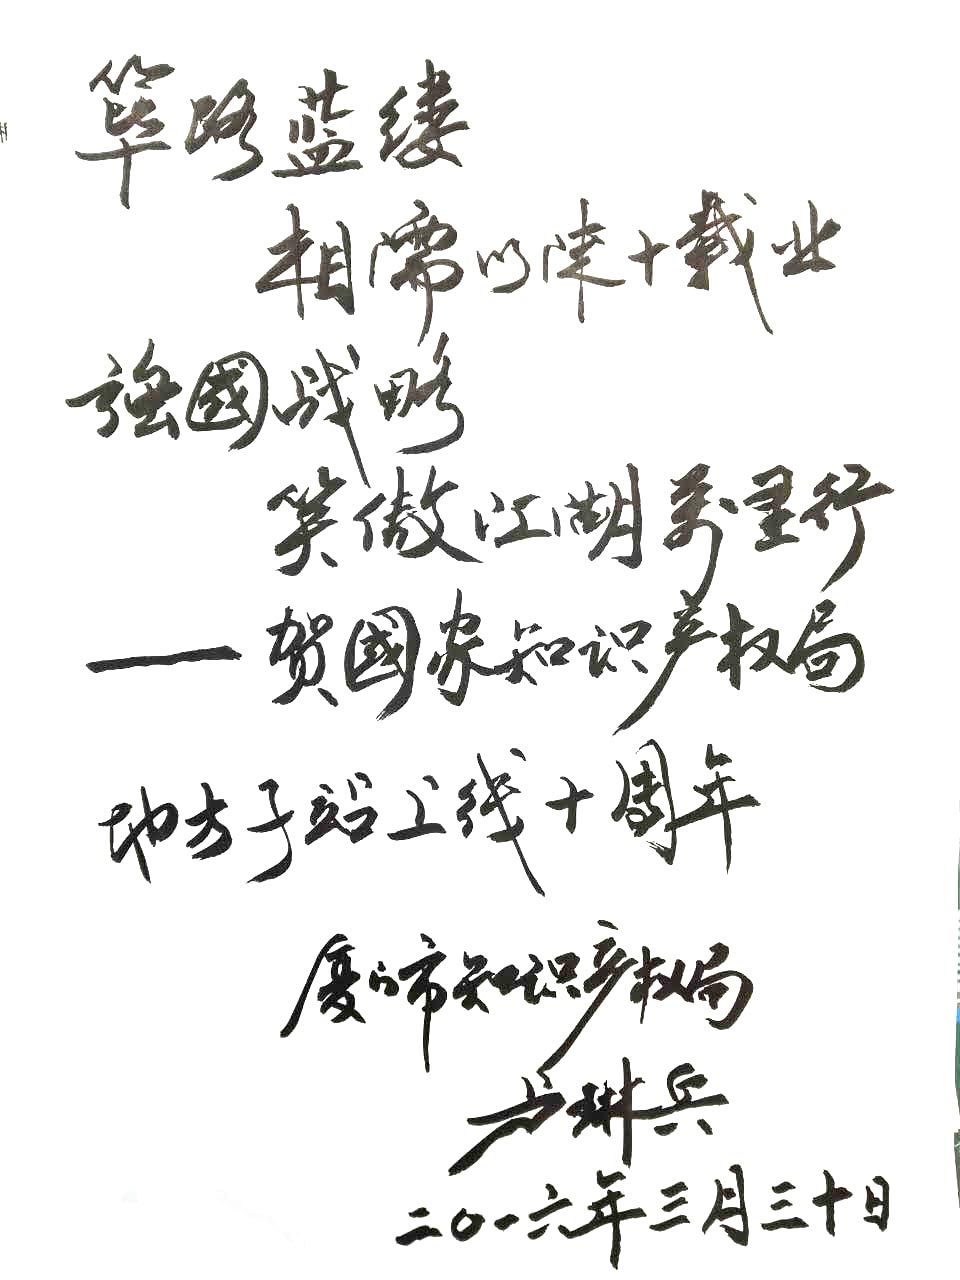 筚路蓝缕
相濡以沫十载业
強國战略
笑傲江湖萬里行
—贺國家知识产权局
地方子站上线十周年
厦门市知识产权局
卢琳兵
二〇一六年三月三十日